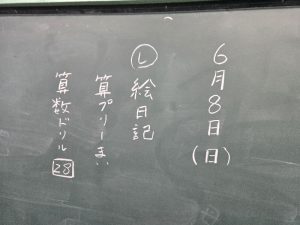 6月8日(日)
㋹絵日記
算プリーまい
算数ドリル28